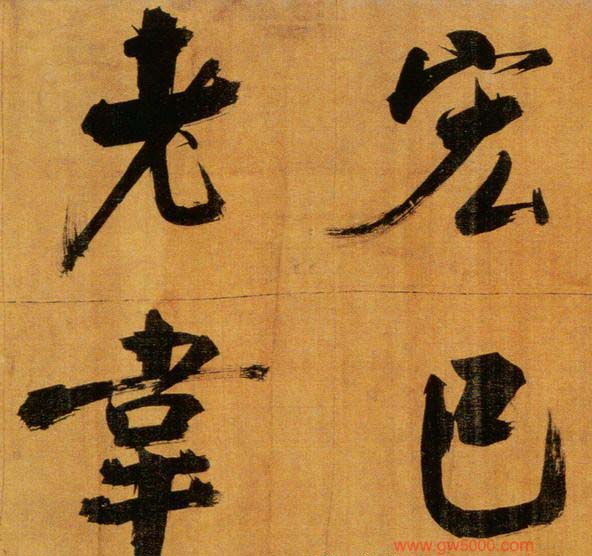 宏已
老韋
www.gw5000.com